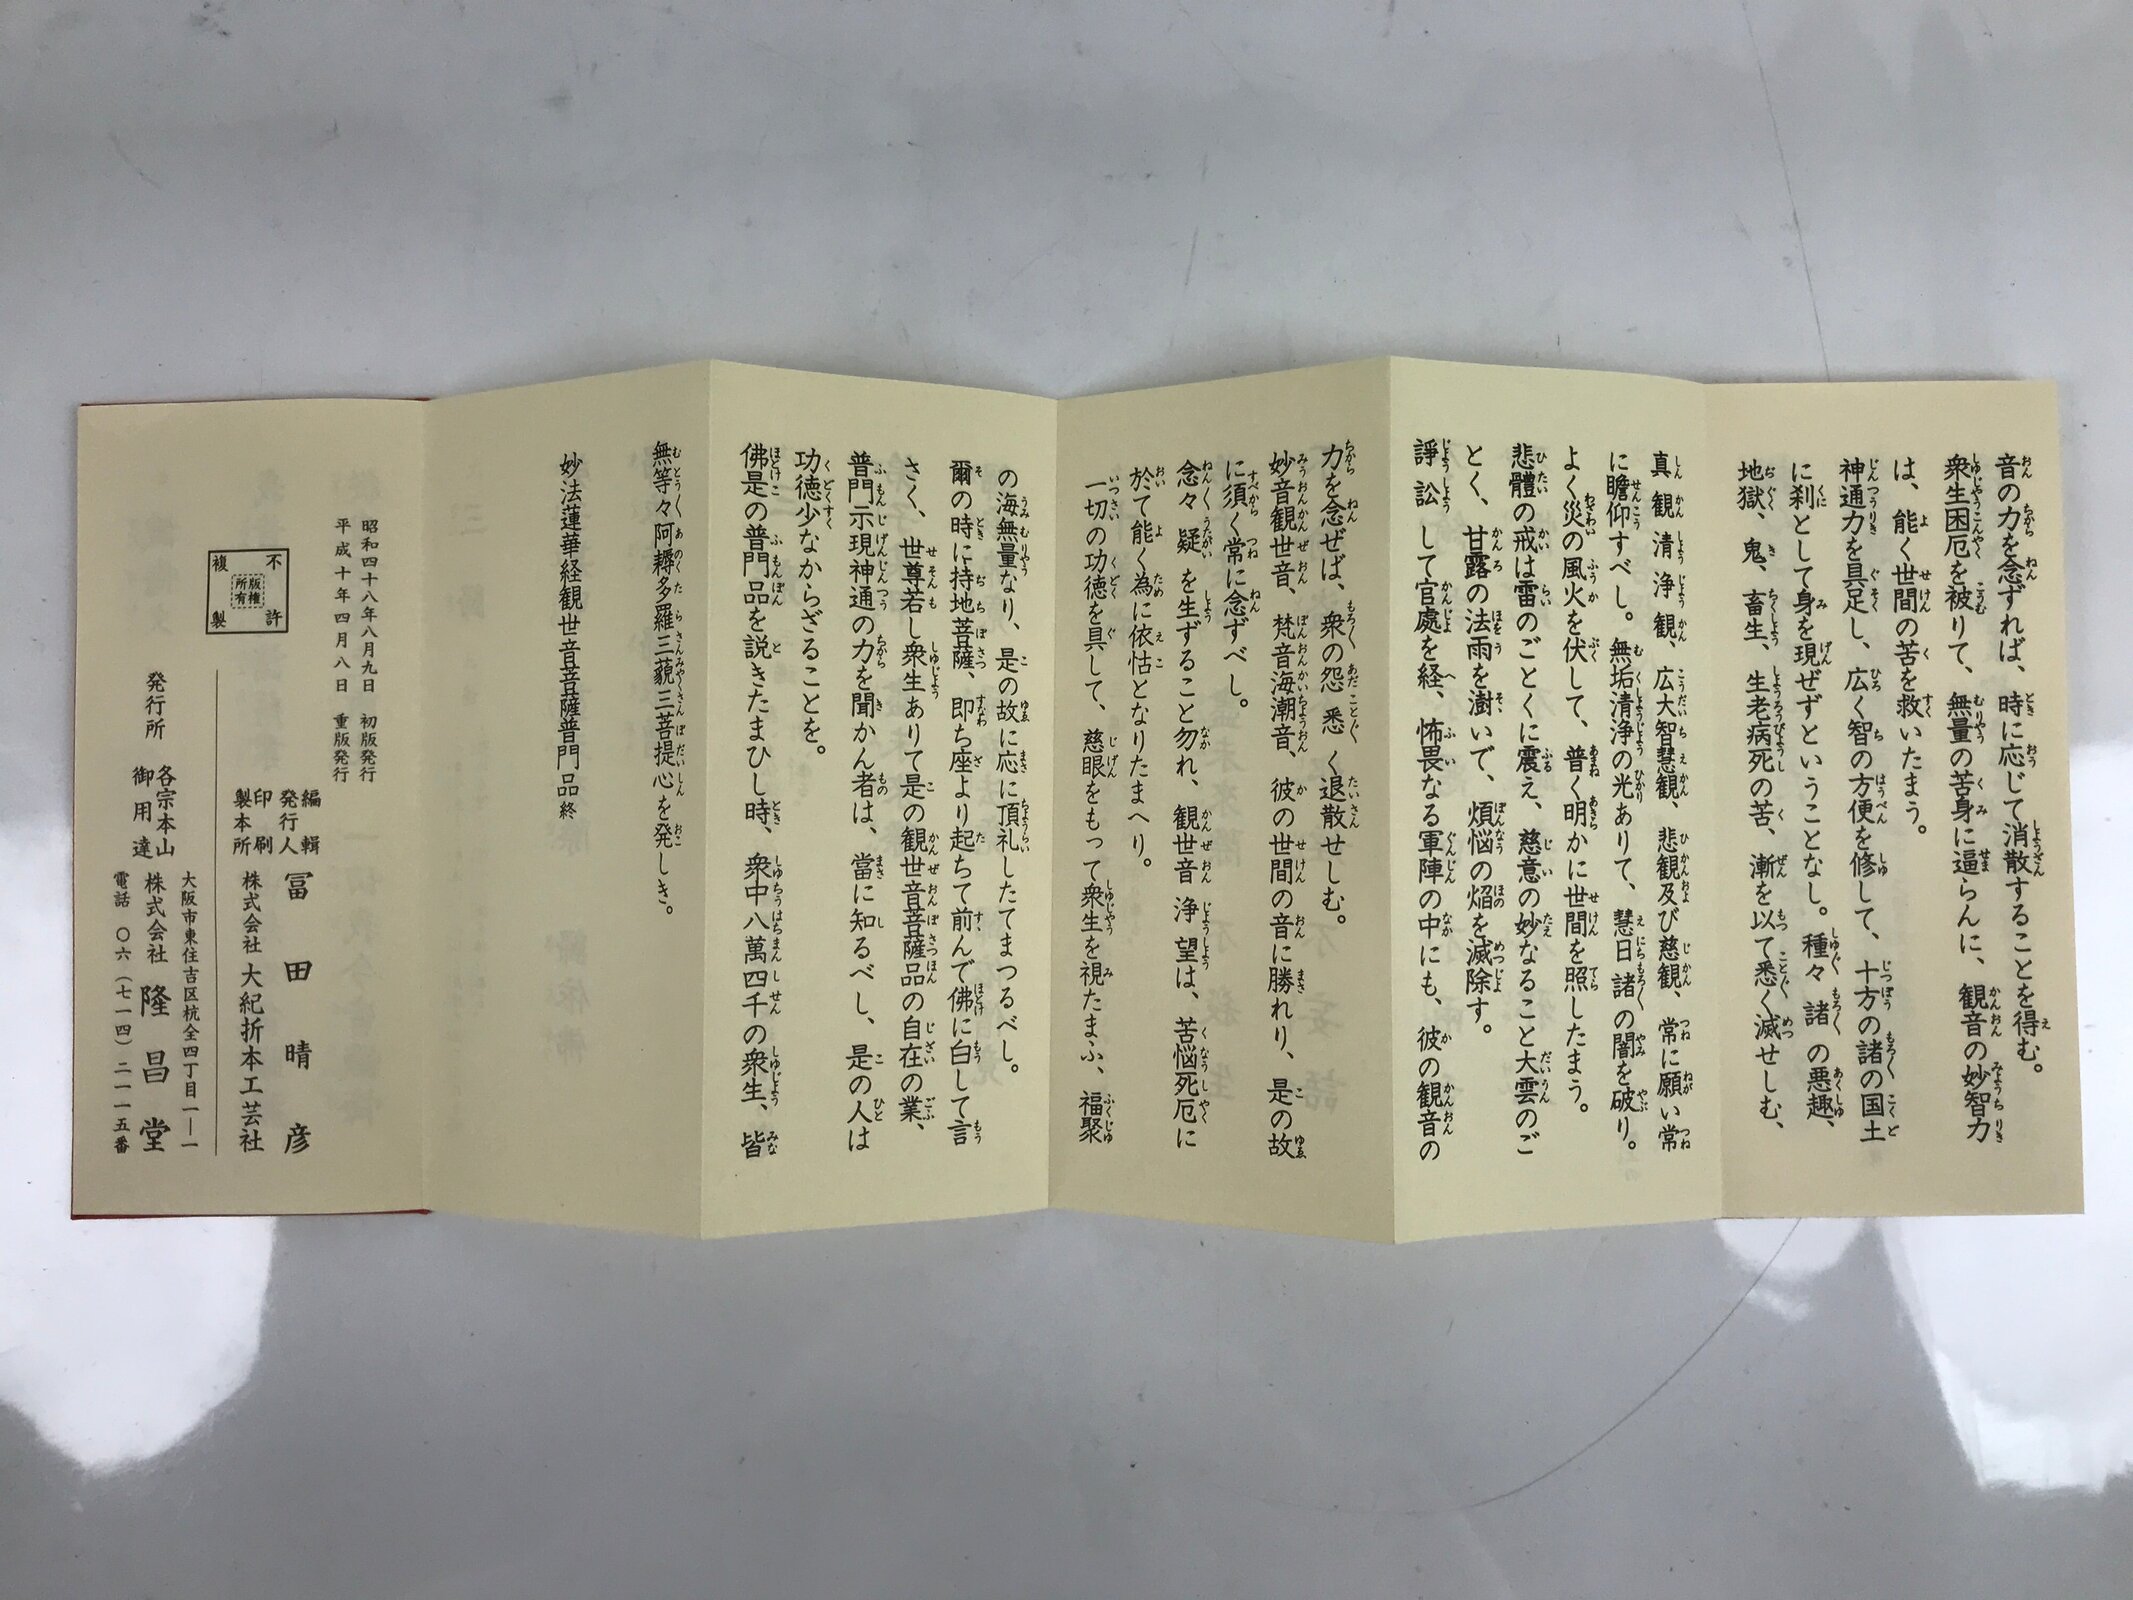 音の力を念ずれば、時に応じて消散することを得む。
衆生困厄を被りて、無量の苦身に逼らんに、観音の妙智力
は、能く世間の苦を救いたまう。
神通力を具足し、広く智の方便を修して、十方の諸の国土
に刹として身を現ぜずということなし。種々諸の悪趣、
地獄、鬼、畜生、生老病死の苦、漸を以て悉く滅せしむ、
真観清浄観、広大智慧観、悲観及び慈観、常に願い常
に瞻仰すべし。無垢清浄の光ありて、慧日諸の闇を破り。
よく災の風火を伏して、普く明かに世間を照したまう。
悲體の戒は雷のごとくに震え、慈意の妙なること大雲のご
とく、甘露の法雨を澍いで、煩悩の焔を滅除す。
諍訟して官處を経、怖畏なる軍陣の中にも、彼の観音の
力を念ぜば、衆の怨悉く退散せしむ。
妙音観世音、梵音海潮音、彼の世間の音に勝れり、是の故
に須く常に念ずべし。
念々疑を生ずること勿れ、観世音浄望は、苦悩死厄に
於て能く為に依怙となりたまへり。
一切の功徳を具して、慈眼をもって衆生を視たまふ、福聚
の海無量なり、是の故に応に頂礼したてまつるべし。
爾の時に持地菩薩、即ち座より起ちて前んで佛に白して言
さく、世尊若し衆生ありて是の観世音菩薩品の自在の業、
普門示現神通の力を聞かん者は、當に知るべし、是の人は
功徳少なからざることを。
佛是の普門品を説きたまひし時、衆中八萬四千の衆生、皆
無等々阿耨多羅三藐三菩提心を発しき。
妙法蓮華経観世音菩薩普門品終
昭和四十八年八月九日 初版発行
平成十年四月八日 重版発行
不許
複製
版権
所有
編輯
発行人 冨田晴彦
印刷
製本所 株式会社 大紀折本工芸社
大阪市東住吉区杭全四丁目一―一
発行所 各宗本山
御用達 株式会社 隆昌堂
電話 〇六(七一四)二一一五番